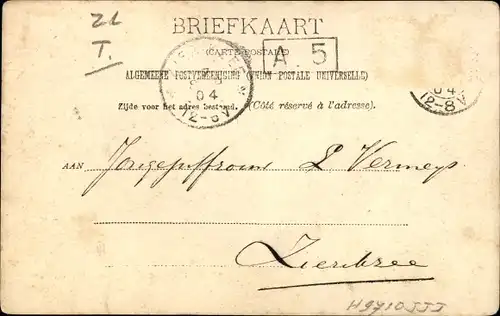 21
T.
BRIEFKAART
(CARTE POSTALE)
A. 5
ALGEMEENE POSTVEREENIGING (UNION POSTALE UNIVERSELLE)
Zijde voor het adres bestemd. (Côté réservé à l'adresse).
04
12-8V
04
12-8V
AAN Jongejuffrouw L. Vermeys
Zierikzee
H9710JJJ